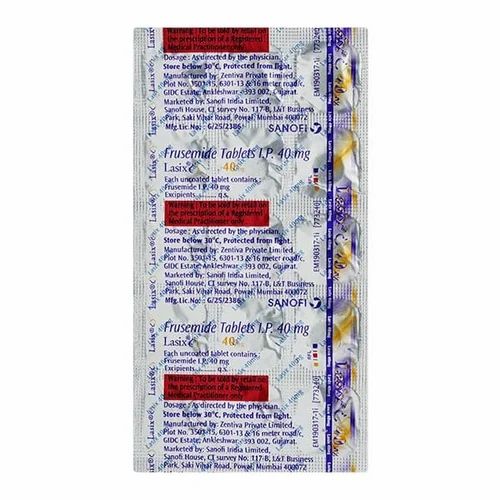 Warning : To be sold by retail on
the prescription of a Registered
Medical Practitioner only
Dosage : As directed by the physician.
Store below 30°C, Protected from light.
Manufactured by: Zentiva Private Limited,
Plot No. 3503-15, 6301-13 & 16 meter road/c,
GIDC Estate, Ankleshwar - 393 002, Gujarat.
Marketed by: Sanofi India Limited,
Sanofi House, CT survey No. 117-B, L&T Business
Park, Saki Vihar Road, Powai, Mumbai 400072
Mfg.Lic.No.: G/25/2386
SANOFI
EM190317-1i
[773240]
Frusemide Tablets I.P. 40 mg
Lasix®
40
Each uncoated tablet contains :
Frusemide I.P. 40 mg
Excipients q.s.
Warning : To be sold by retail on
the prescription of a Registered
Medical Practitioner only
Dosage : As directed by the physician.
Store below 30°C, Protected from light.
Manufactured by: Zentiva Private Limited,
Plot No. 3503-15, 6301-13 & 16 meter road/c,
GIDC Estate, Ankleshwar - 393 002, Gujarat.
Marketed by: Sanofi India Limited,
Sanofi House, CT survey No. 117-B, L&T Business
Park, Saki Vihar Road, Powai, Mumbai 400072
Mfg.Lic.No.: G/25/2386
SANOFI
EM190317-1i
[773240]
Frusemide Tablets I.P. 40 mg
Lasix®
40
Each uncoated tablet contains :
Frusemide I.P. 40 mg
Excipients q.s.
Warning : To be sold by retail on
the prescription of a Registered
Medical Practitioner only
Dosage : As directed by the physician.
Store below 30°C, Protected from light.
Manufactured by: Zentiva Private Limited,
Plot No. 3503-15, 6301-13 & 16 meter road/c,
GIDC Estate, Ankleshwar - 393 002, Gujarat.
Marketed by: Sanofi India Limited,
Sanofi House, CT survey No. 117-B, L&T Business
Park, Saki Vihar Road, Powai, Mumbai 400072
EM190317-1i
[773240]